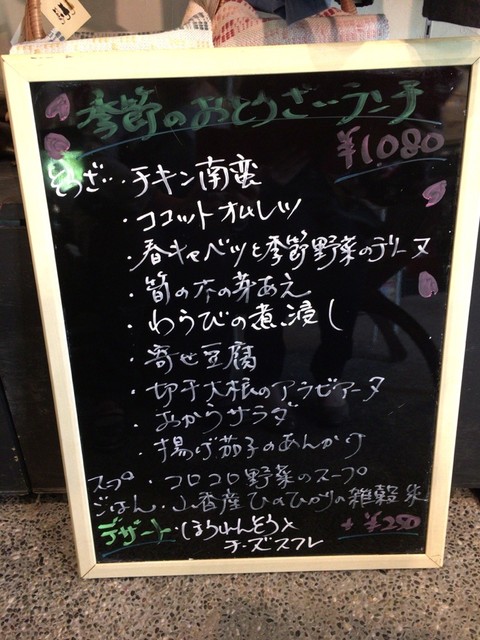 季節のおとうざいランチ
¥1080
そうざい・・チキン南蛮
・ココットオムレツ
・春キャベツと季節野菜のテリーヌ
・筍の木の芽あえ
・わらびの煮浸し
・寄せ豆腐
・切干大根のアラビアータ
・おからサラダ
・揚げ茄子のあんかけ
スープ・コロコロ野菜のスープ
ごはん・山香産ひのひかりの雑穀米
デザート・ほうれんそうと
チーズスフレ
+¥250